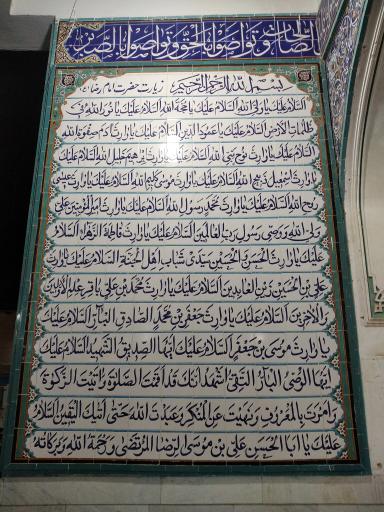 الصالحات وتواصوا بالحق وتواصوا بالصبر
بسم الله الرحمن الرحیم زیارت حضرت امام رضا
السلام علیک یا ولی الله السلام علیک یا حجة الله السلام علیک یا نور الله فی
ظلمات الارض السلام علیک یا عمود الدین السلام علیک یا وارث آدم صفوة الله
السلام علیک یا وارث نوح نبی الله السلام علیک یا وارث ابرهیم خلیل الله السلام علیک
یا وارث اسمعیل ذبیح الله السلام علیک یا وارث موسی کلیم الله السلام علیک یا وارث عیسی
روح الله السلام علیک یا وارث محمد رسول الله السلام علیک یا وارث امیر المؤمنین علی
ولی الله و وصی رسول رب العالمین السلام علیک یا وارث فاطمة الزهراء السلام
علیک یا وارث الحسن و الحسین سیدی شباب اهل الجنة السلام علیک یا وارث
علی بن الحسین زین العابدین السلام علیک یا وارث محمد بن علی باقر علم الاولین
و الاخرین السلام علیک یا وارث جعفر بن محمد الصادق البار السلام علیک
یا وارث موسی بن جعفر السلام علیک ایها الصدیق الشهید السلام علیک
ایها الوصی البار التقی اشهد انک قد اقمت الصلوة و اتیت الزکوة
و امرت بالمعروف و نهیت عن المنکر و عبدت الله حتی اتیک الیقین السلام
علیک یا ابا الحسن علی بن موسی الرضا المرتضی و رحمة الله و برکاته